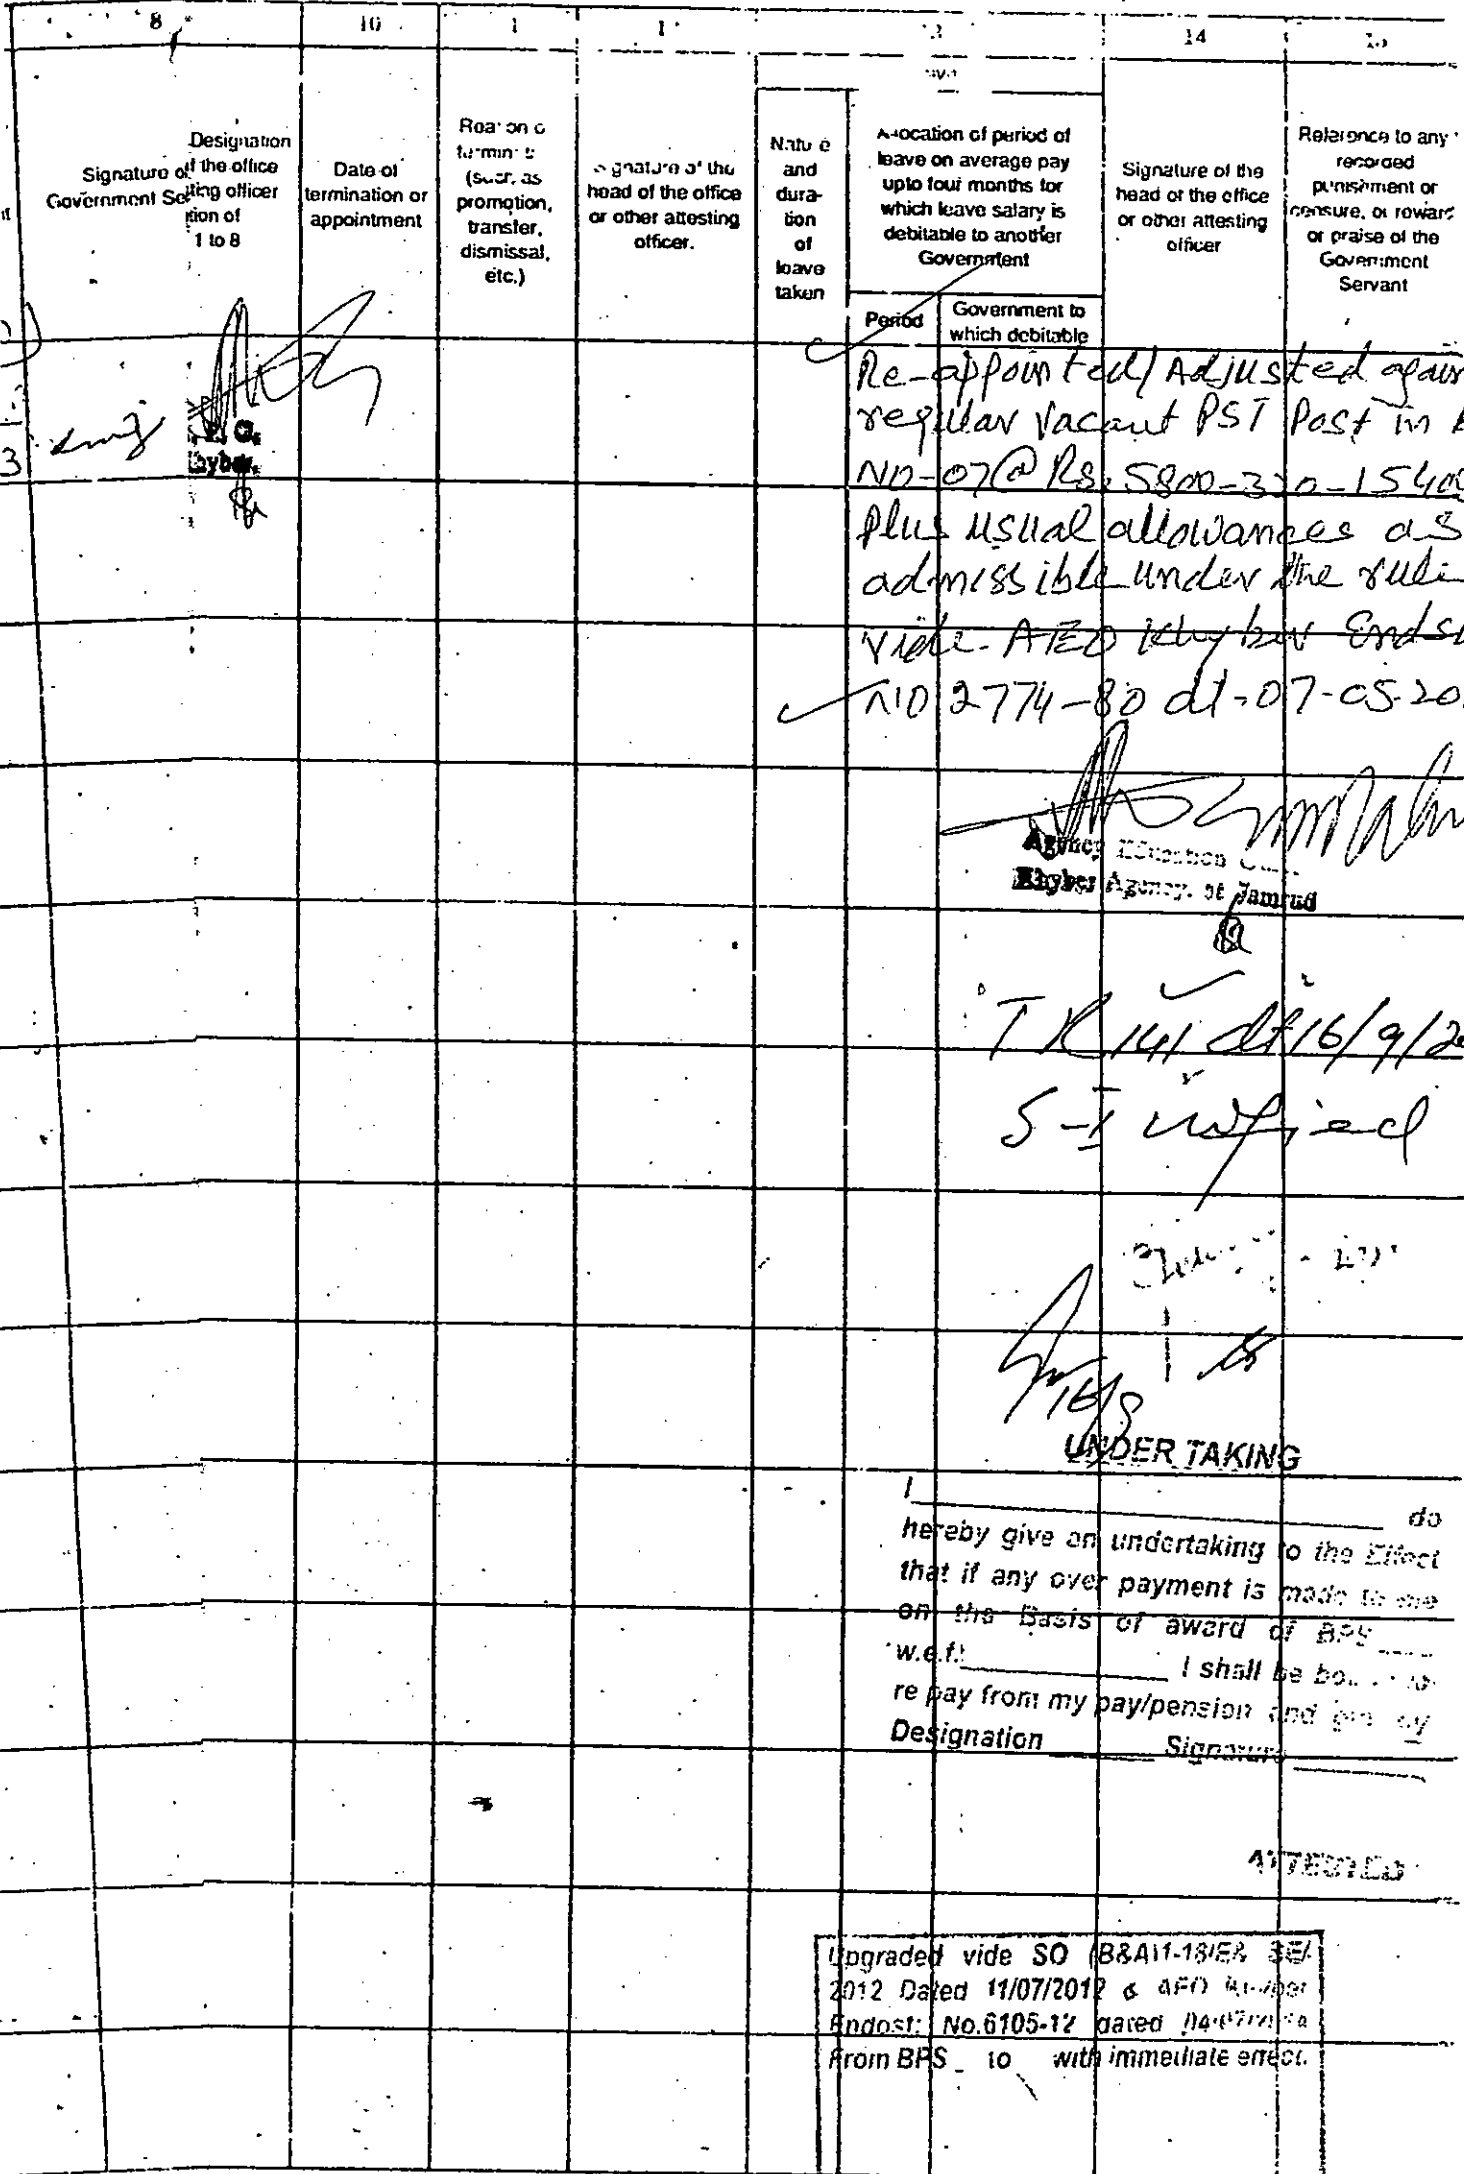 8 10 1 1 13 14
Signature of
Government Se
Designation
of the office
ting officer
tion of
1 to 8
Date of
termination or
appointment
(such as
promotion,
transfer,
dismissal,
etc.)
head of the office
or other attesting
officer.
and
dura-
tion
of
leave
taken
Allocation of period of
leave on average pay
upto four months for
which leave salary is
debitable to another
Government
Period
Government to
which debitable
Signature of the
head of the office
or other attesting
officer
Reference to any
recorded
punishment or
censure, or reward
or praise of the
Government
Servant
3
Re-appointed/Adjusted again
regular vacant PST Post in
NO-07@ Rs. 5800-320-1540
Plus usual allowances as
admissible under the rule
vide AEO Khyber Endst
NO 2774-80 dt-07-05-20
Agency Education
Khyber Agency, at Jamrud
TR 141 dt 16/9/20
S-I
16/9
UNDER TAKING
I ________ do
hereby give an undertaking to the Effect
that if any over payment is made to me
on the Basis of award of BPS ____
w.e.f: ________ I shall be
re pay from my pay/pension and
Designation ______ Signature ______
ATTESTED
Upgraded vide SO (B&A)1-18/E& SE/
2012 Dated 11/07/2012 & AEO Khyber
Endost: No.6105-12 dated
From BPS _ to with immediate effect.